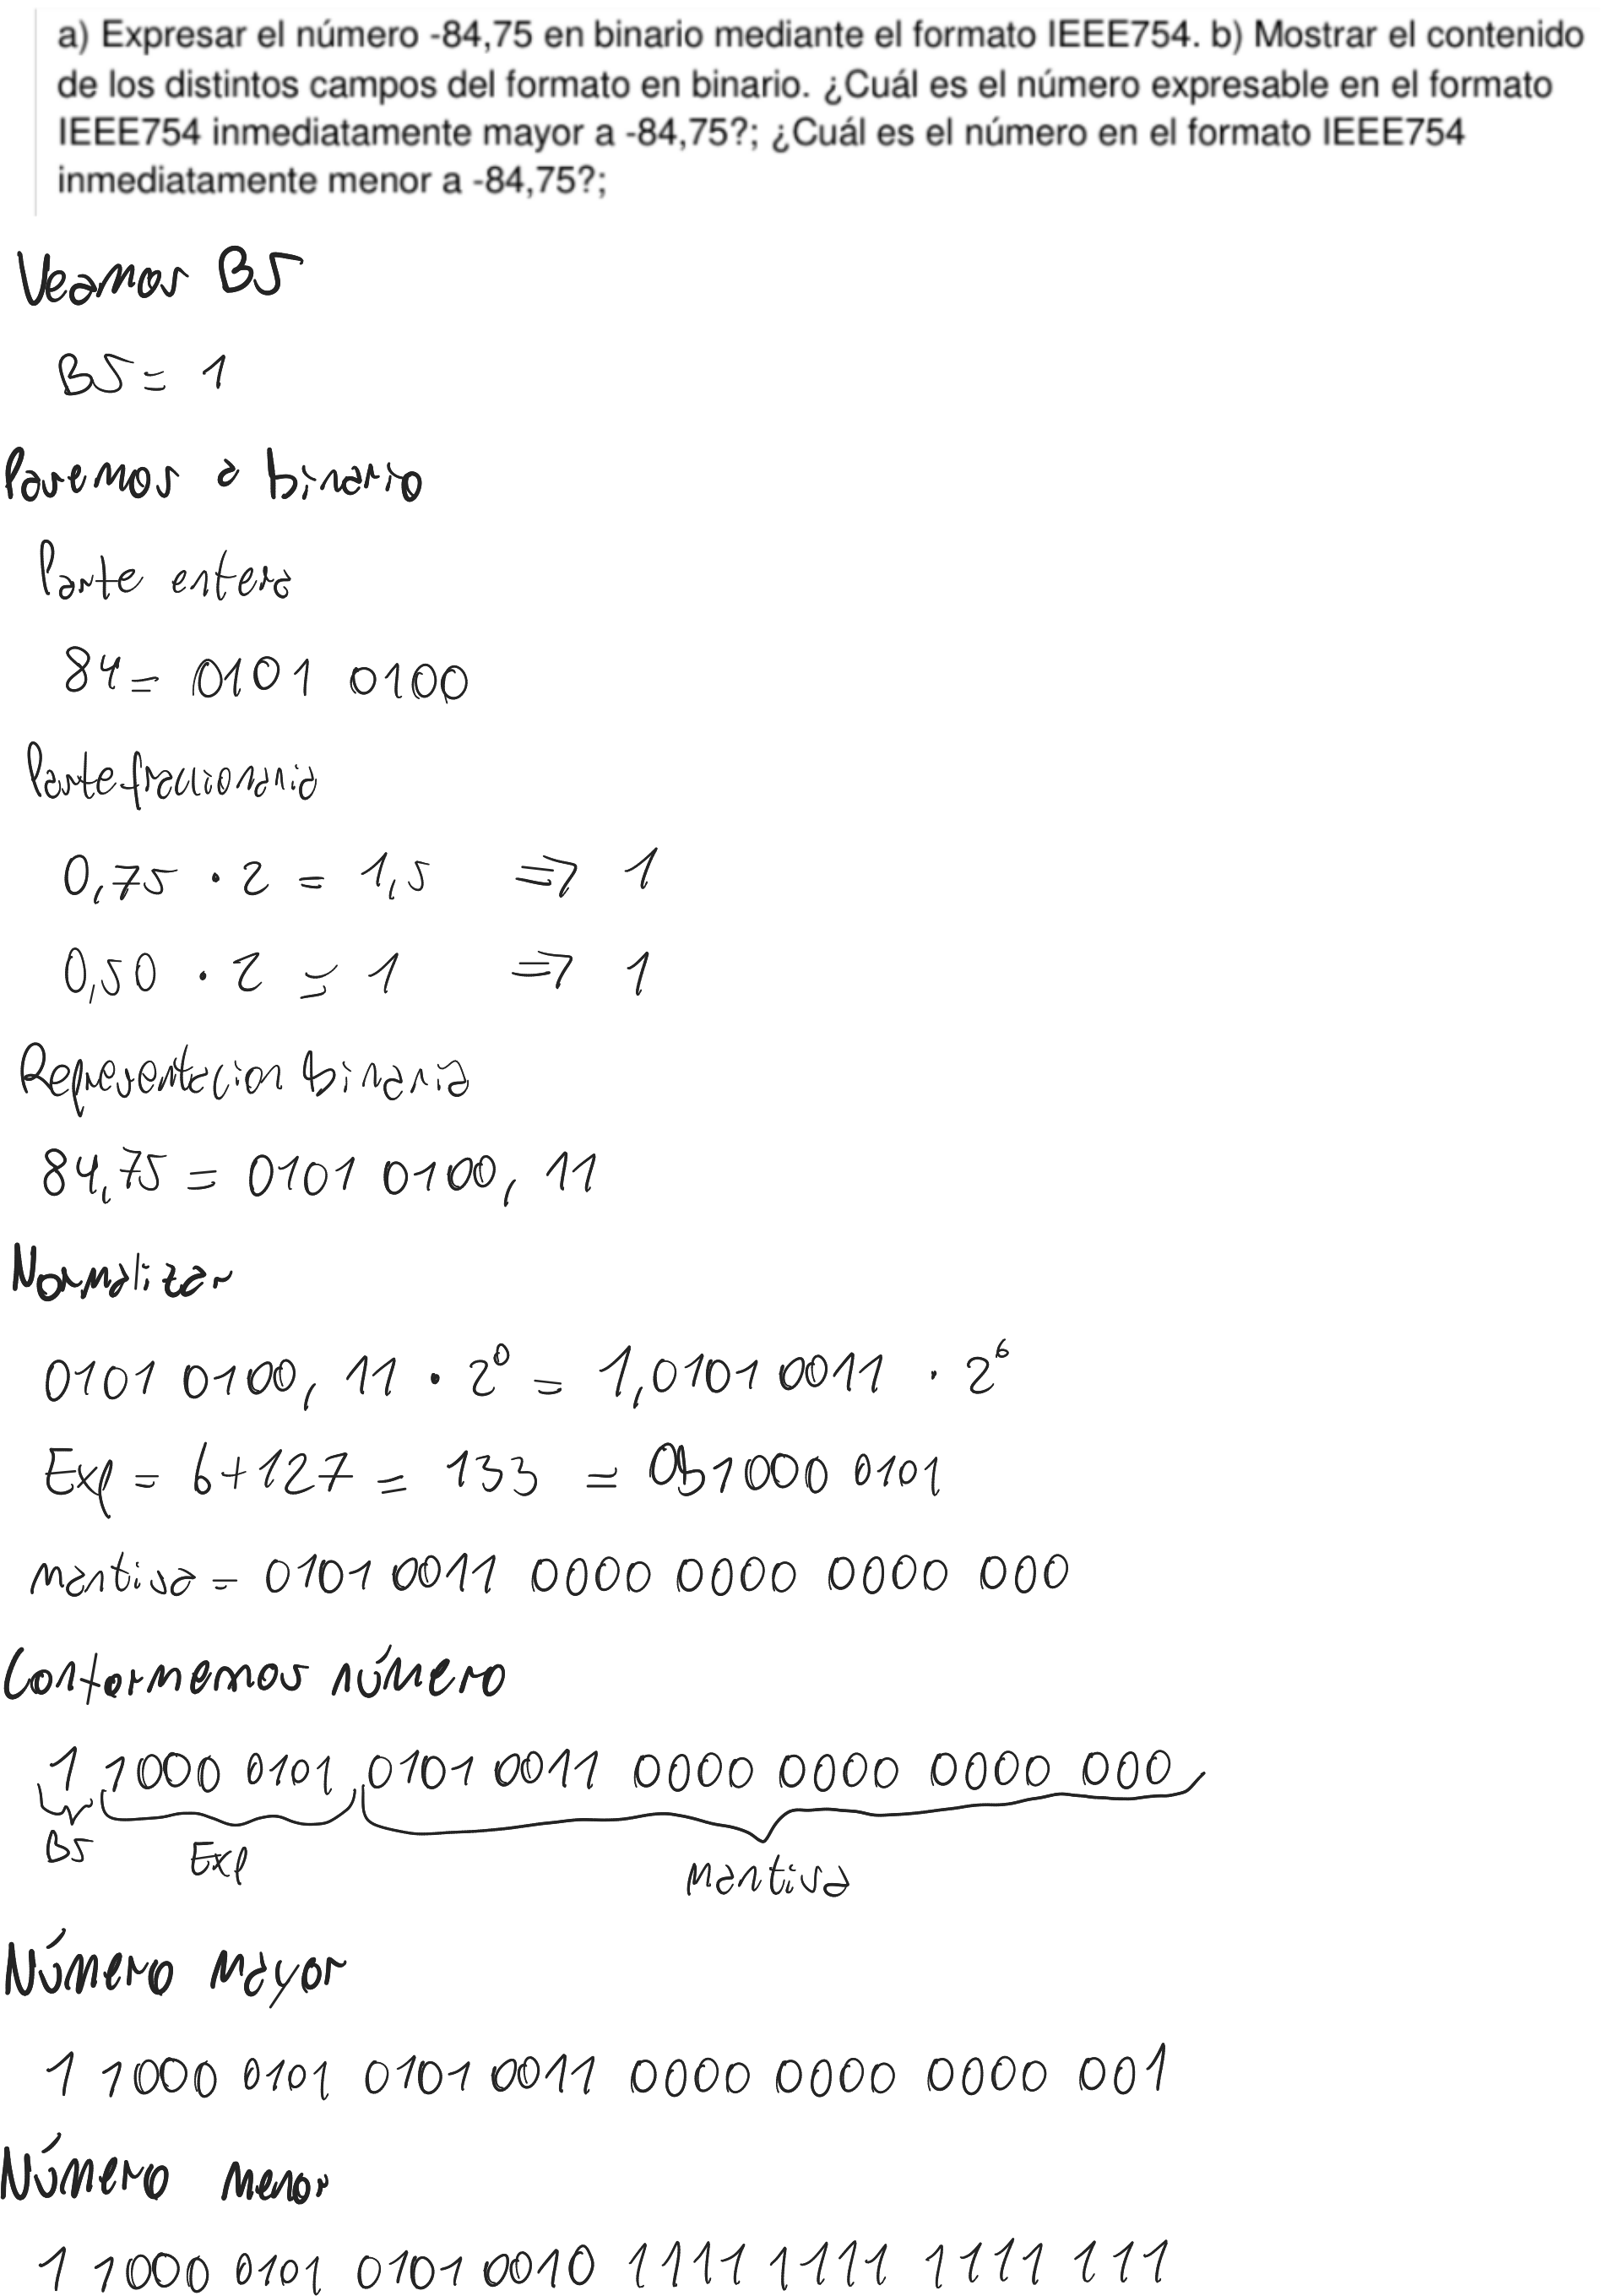 a) Expresar el número -84,75 en binario mediante el formato IEEE754. b) Mostrar el contenido
de los distintos campos del formato en binario. ¿Cuál es el número expresable en el formato
IEEE754 inmediatamente mayor a -84,75?; ¿Cuál es el número en el formato IEEE754
inmediatamente menor a -84,75?;
Veamos BS
BS = 1
Pasemos a binario
Parte entera
84 = 0101 0100
Parte fraccionaria
0,75 · 2 = 1,5 => 1
0,50 · 2 = 1 => 1
Representacion binaria
84,75 = 0101 0100, 11
Normalizar
0101 0100, 11 · 2⁰ = 1,0101 0011 · 2⁶
Exp = 6+127 = 133 = 0b1000 0101
mantisa = 0101 0011 0000 0000 0000 000
Conformemos número
1 1000 0101 0101 0011 0000 0000 0000 000
BS Exp mantisa
Número mayor
1 1000 0101 0101 0011 0000 0000 0000 001
Número menor
1 1000 0101 0101 0010 1111 1111 1111 111